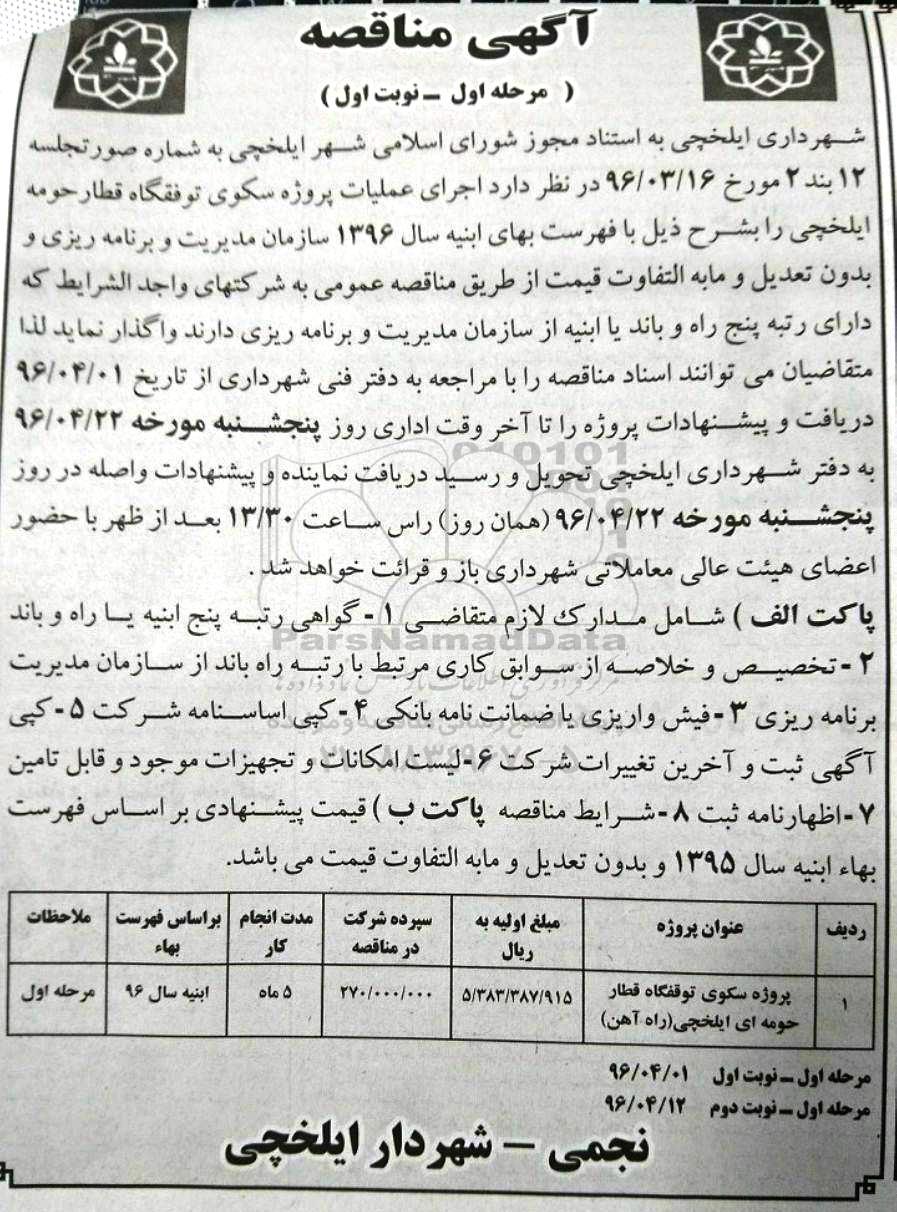 آگهی مناقصه
( مرحله اول ـ نوبت اول )
شهرداری ایلخچی به استناد مجوز شورای اسلامی شهر ایلخچی به شماره صورتجلسه
۱۲ بند ۲ مورخ ۹۶/۰۳/۱۶ در نظر دارد اجرای عملیات پروژه سکوی توفقگاه قطار حومه
ایلخچی را بشرح ذیل با فهرست بهای ابنیه سال ۱۳۹۶ سازمان مدیریت و برنامه ریزی و
بدون تعدیل و مابه التفاوت قیمت از طریق مناقصه عمومی به شرکتهای واجد الشرایط که
دارای رتبه پنج راه و باند یا ابنیه از سازمان مدیریت و برنامه ریزی دارند واگذار نماید لذا
متقاضیان می توانند اسناد مناقصه را با مراجعه به دفتر فنی شهرداری از تاریخ ۹۶/۰۴/۰۱
دریافت و پیشنهادات پروژه را تا آخر وقت اداری روز پنجشنبه مورخه ۹۶/۰۴/۲۲
به دفتر شهرداری ایلخچی تحویل و رسید دریافت نماینده و پیشنهادات واصله در روز
پنجشنبه مورخه ۹۶/۰۴/۲۲ (همان روز) راس ساعت ۱۳/۳۰ بعد از ظهر با حضور
اعضای هیئت عالی معاملاتی شهرداری باز و قرائت خواهد شد .
پاکت الف ) شامل مدارک لازم متقاضی ۱- گواهی رتبه پنج ابنیه یا راه و باند
ParsNamadData
۲- تخصیص و خلاصه از سوابق کاری مرتبط با رتبه راه باند از سازمان مدیریت
برنامه ریزی ۳- فیش واریزی یا ضمانت نامه بانکی ۴- کپی اساسنامه شرکت ۵- کپی
آگهی ثبت و آخرین تغییرات شرکت ۶- لیست امکانات و تجهیزات موجود و قابل تامین
۷- اظهارنامه ثبت ۸- شرایط مناقصه پاکت ب ) قیمت پیشنهادی بر اساس فهرست
بهاء ابنیه سال ۱۳۹۵ و بدون تعدیل و مابه التفاوت قیمت می باشد.
ردیف عنوان پروژه مبلغ اولیه به ریال سپرده شرکت در مناقصه مدت انجام کار براساس فهرست بهاء ملاحظات
۱ پروژه سکوی توقفگاه قطار حومه ای ایلخچی(راه آهن) ۵/۳۸۳/۳۸۷/۹۱۵ ۲۷۰/۰۰۰/۰۰۰ ۵ ماه ابنیه سال ۹۶ مرحله اول
مرحله اول ـ نوبت اول ۹۶/۰۴/۰۱
مرحله اول ـ نوبت دوم ۹۶/۰۴/۱۲
نجمی - شهردار ایلخچی